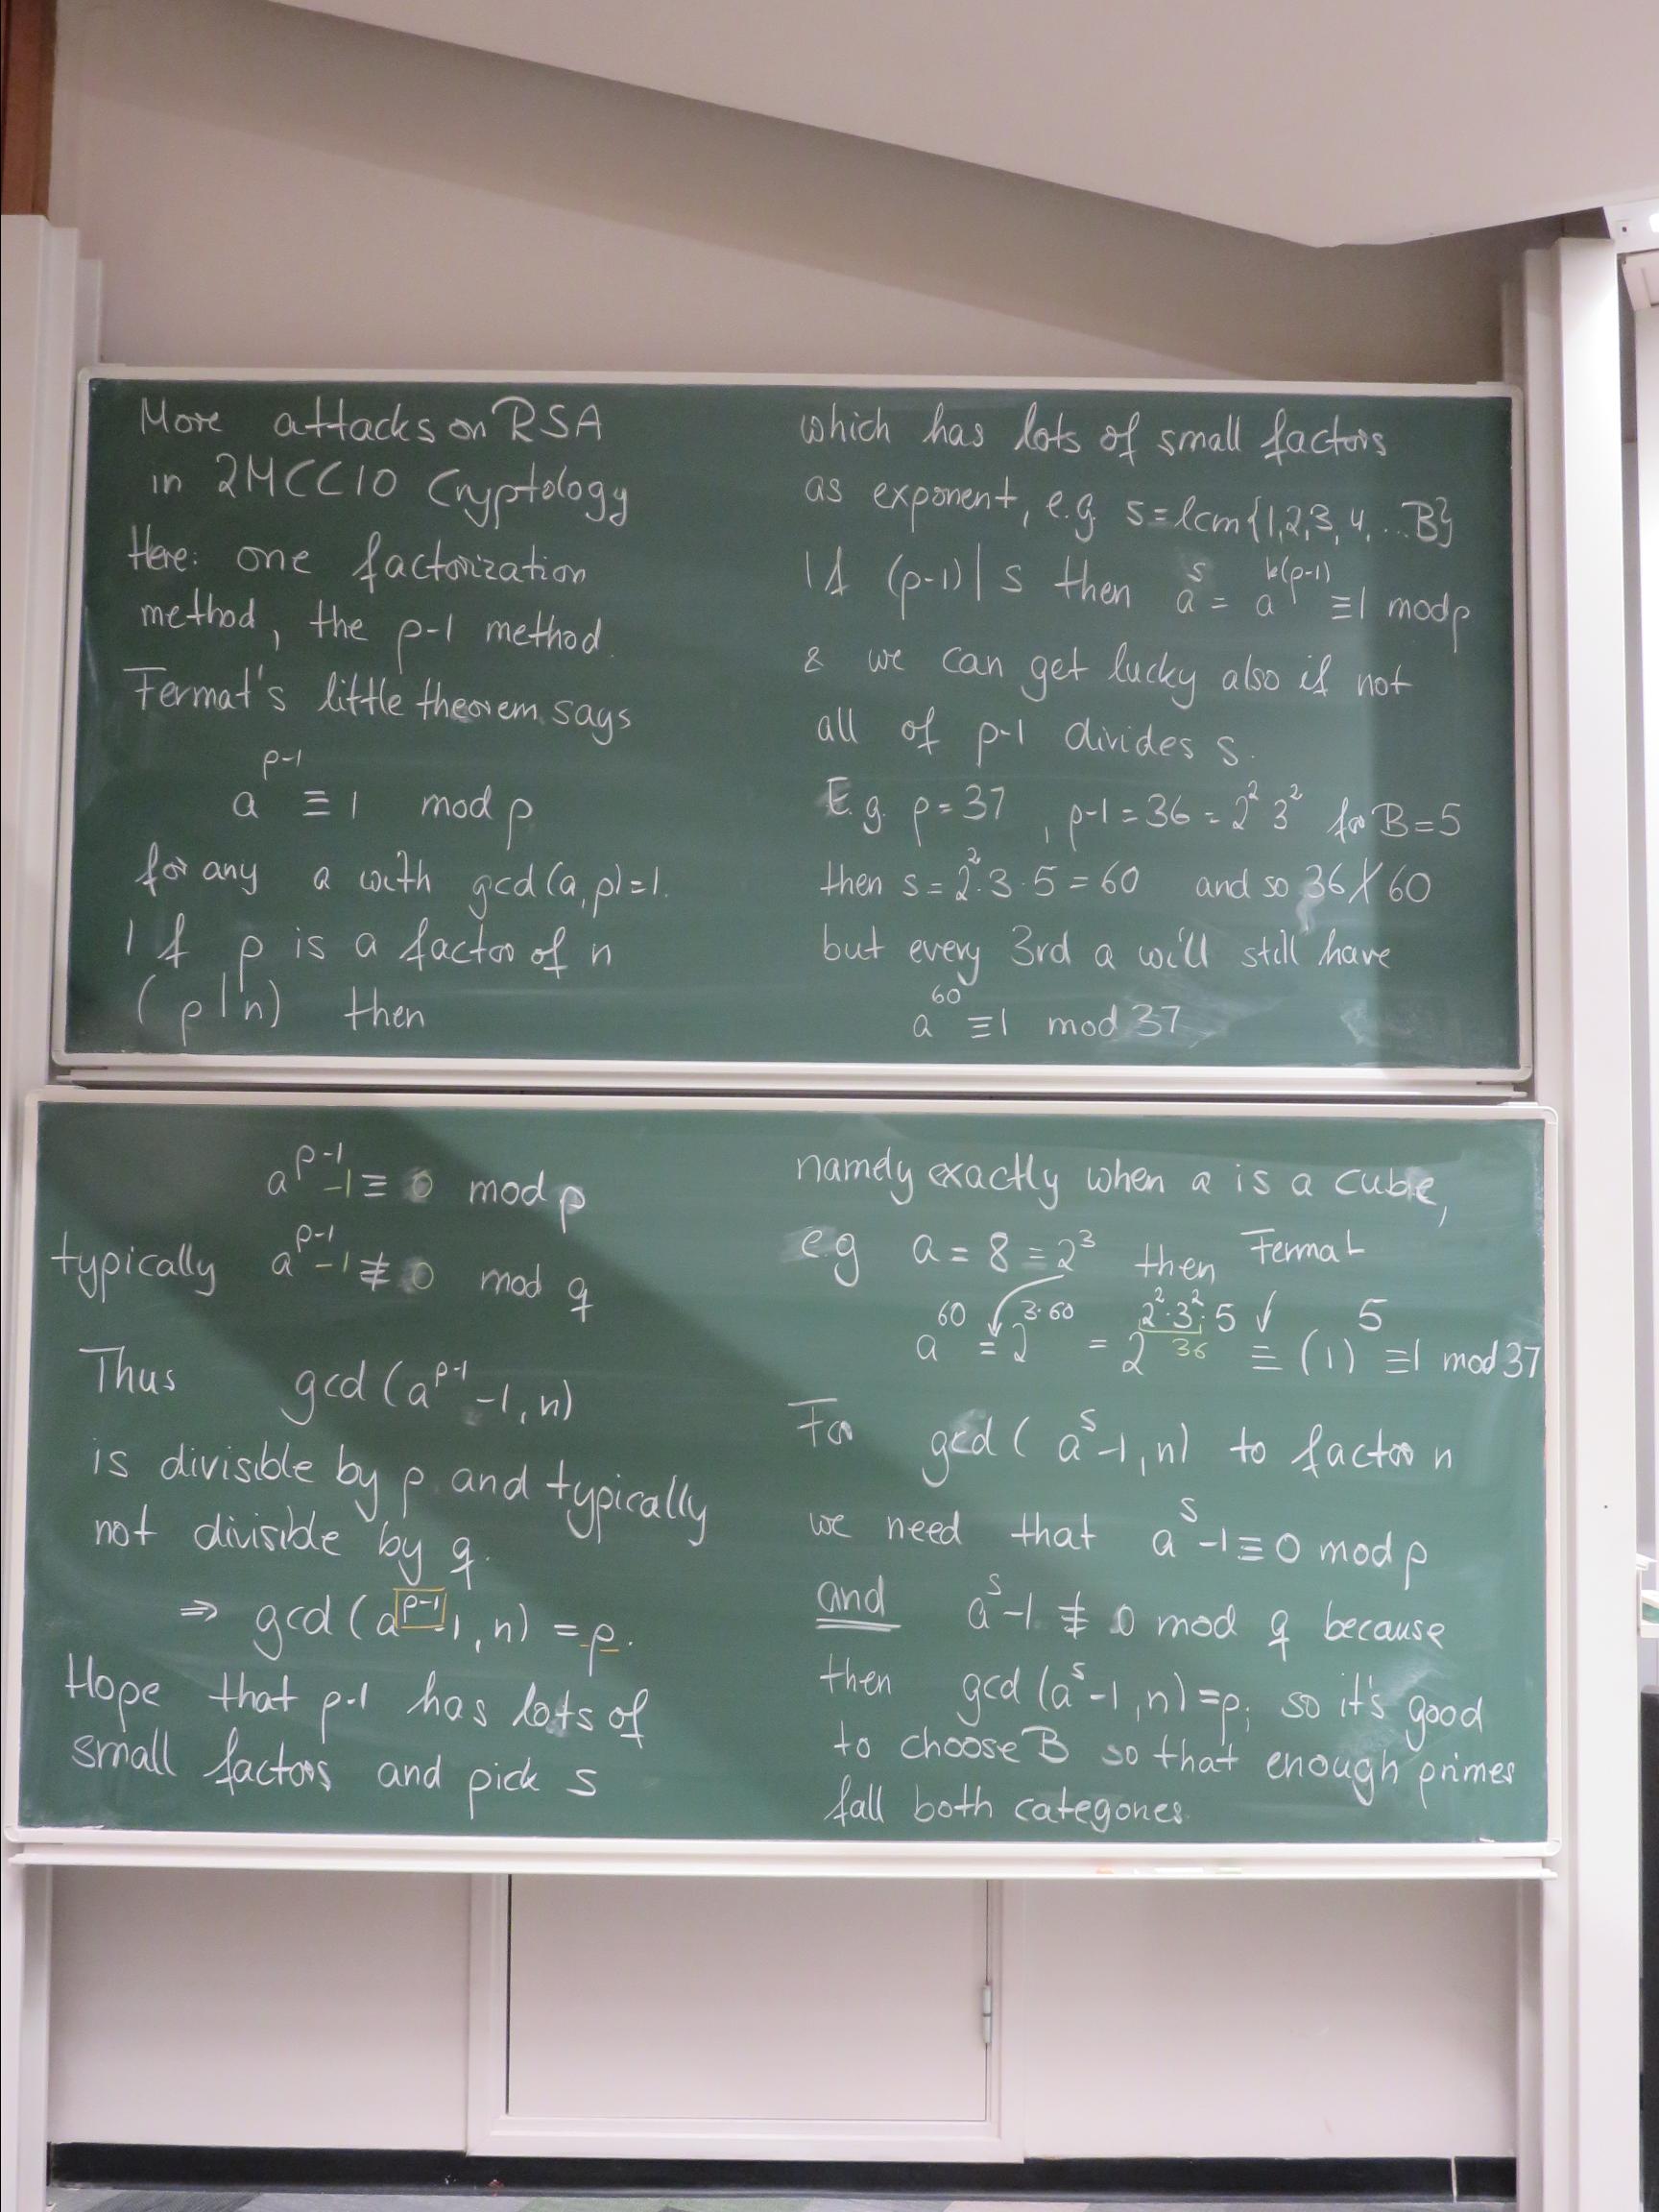 More attacks on RSA
in 2MCC10 Cryptology
Here: one factorization
method, the p-1 method.
Fermat's little theorem says
a^{p-1} ≡ 1 mod p
for any a with gcd(a,p)=1.
If p is a factor of n
(p|n) then
a^{p-1}-1 ≡ 0 mod p
typically a^{p-1}-1 ≢ 0 mod q
Thus gcd(a^{p-1}-1, n)
is divisible by p and typically
not divisible by q.
⇒ gcd(a^{p-1}-1, n) = p.
Hope that p-1 has lots of
small factors and pick s
which has lots of small factors
as exponent, e.g. s = lcm{1,2,3,4,...B}
If (p-1)|s then a^s = a^{k(p-1)} ≡ 1 mod p
& we can get lucky also if not
all of p-1 divides s.
E.g. p=37, p-1=36=2^2 3^2 for B=5
then s=2^2·3·5=60 and so 36∤60
but every 3rd a will still have
a^{60} ≡ 1 mod 37
namely exactly when a is a cube,
e.g a = 8 = 2^3 then Fermat
a^{60} = 2^{3·60} = 2^{2^2·3^2·5} ≡ (1)^5 ≡ 1 mod 37
36
For gcd(a^s-1, n) to factor n
we need that a^s-1 ≡ 0 mod p
and a^s-1 ≢ 0 mod q because
then gcd(a^s-1, n) = p; so it's good
to choose B so that enough primes
fall both categories.